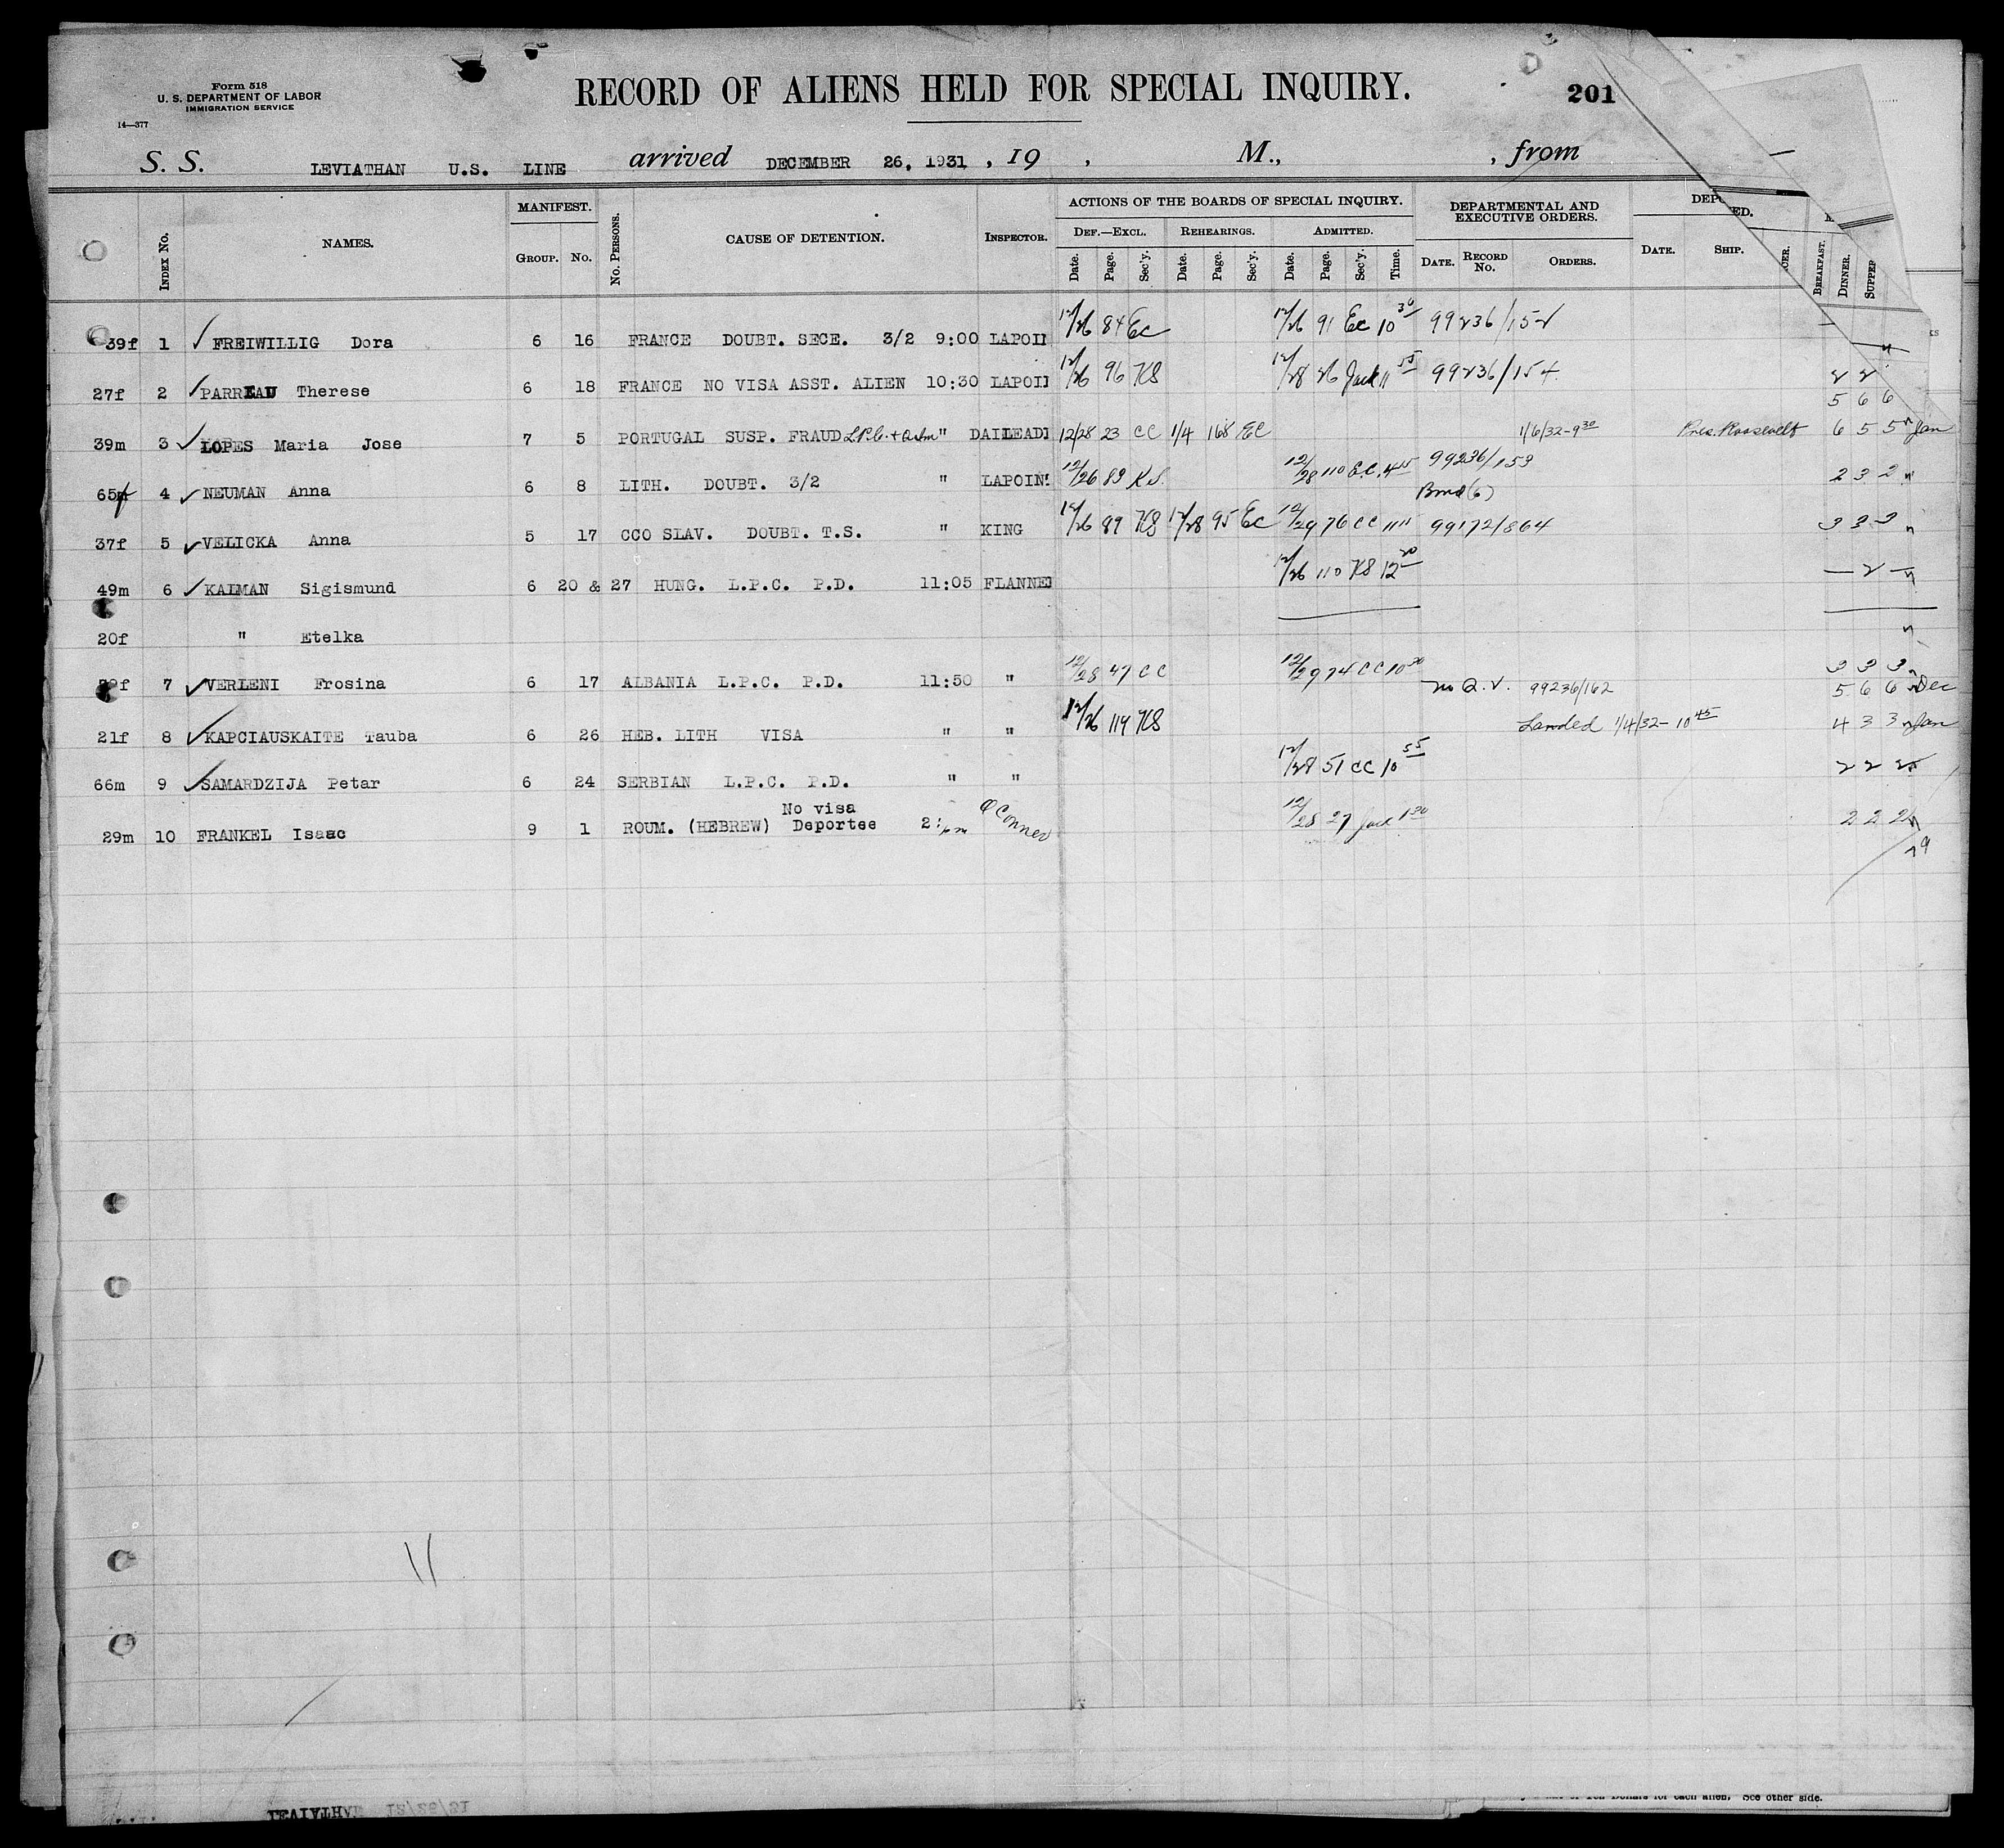 Form 518
U. S. DEPARTMENT OF LABOR
IMMIGRATION SERVICE
14—377
RECORD OF ALIENS HELD FOR SPECIAL INQUIRY.
201
S. S. LEVIATHAN U.S. LINE arrived DECEMBER 26, 1931, 19 , M., , from
INDEX NO. NAMES. MANIFEST. GROUP. NO. NO. PERSONS. CAUSE OF DETENTION. INSPECTOR. ACTIONS OF THE BOARDS OF SPECIAL INQUIRY. DEPARTMENTAL AND EXECUTIVE ORDERS.
DEF.—EXCL. REHEARINGS. ADMITTED.
Date. Page. Sec'y. Date. Page. Sec'y. Date. Page. Sec'y. Time. DATE. RECORD NO. ORDERS. DATE. SHIP. BREAKFAST. DINNER. SUPPER
39f 1 FREIWILLIG Dora 6 16 FRANCE DOUBT. SECE. 3/2 9:00 LAPOIN 12/26 84 EC 12/26 91 EC 10 30 99236/152
27f 2 PARREAU Therese 6 18 FRANCE NO VISA ASST. ALIEN 10:30 LAPOIN 12/26 96 KS 12/28 26 Jack 11 55 99236/154 2 2
5 6 6
39m 3 LOPES Maria Jose 7 5 PORTUGAL SUSP. FRAUD L.P.C. + " DAILEADI 12/28 23 CC 1/4 168 EC 1/6/32-9 30 Pres. Roosevelt 6 5 5 Jan
65f 4 NEUMAN Anna 6 8 LITH. DOUBT. 3/2 " LAPOIN 12/26 83 K.S. 12/28 110 E.C. 4 15 99236/153 2 3 2 "
Bond (6)
37f 5 VELICKA Anna 5 17 CCO SLAV. DOUBT. T.S. " KING 12/26 89 KS 12/28 95 EC 12/29 76 CC 11 15 99172/864 3 3 3
49m 6 KALMAN Sigismund 6 20 & 27 HUNG. L.P.C. P.D. 11:05 FLANNE 12/26 110 KS 12 20 — 2 —
20f " Etelka
7 VERLENI Frosina 6 17 ALBANIA L.P.C. P.D. 11:50 " 12/28 47 CC 12/29 74 CC 10 30 3 3 3
no Q.V. 99236/162 5 6 6 Dec
21f 8 KAPCIAUSKAITE Tauba 6 26 HEB. LITH VISA " " 12/26 114 KS Landed 1/4/32- 10 45 4 3 3 Jan
66m 9 SAMARDZIJA Petar 6 24 SERBIAN L.P.C. P.D. " " 12/28 51 CC 10 55 2 2 2
No visa
29m 10 FRANKEL Isaac 9 1 ROUM. (HEBREW) Deportee 2: pm O'Conner 12/28 27 Jack 1 30 2 2 2
LEVIATHAN 12/26/31
of Ten Dollars for each alien. See other side.